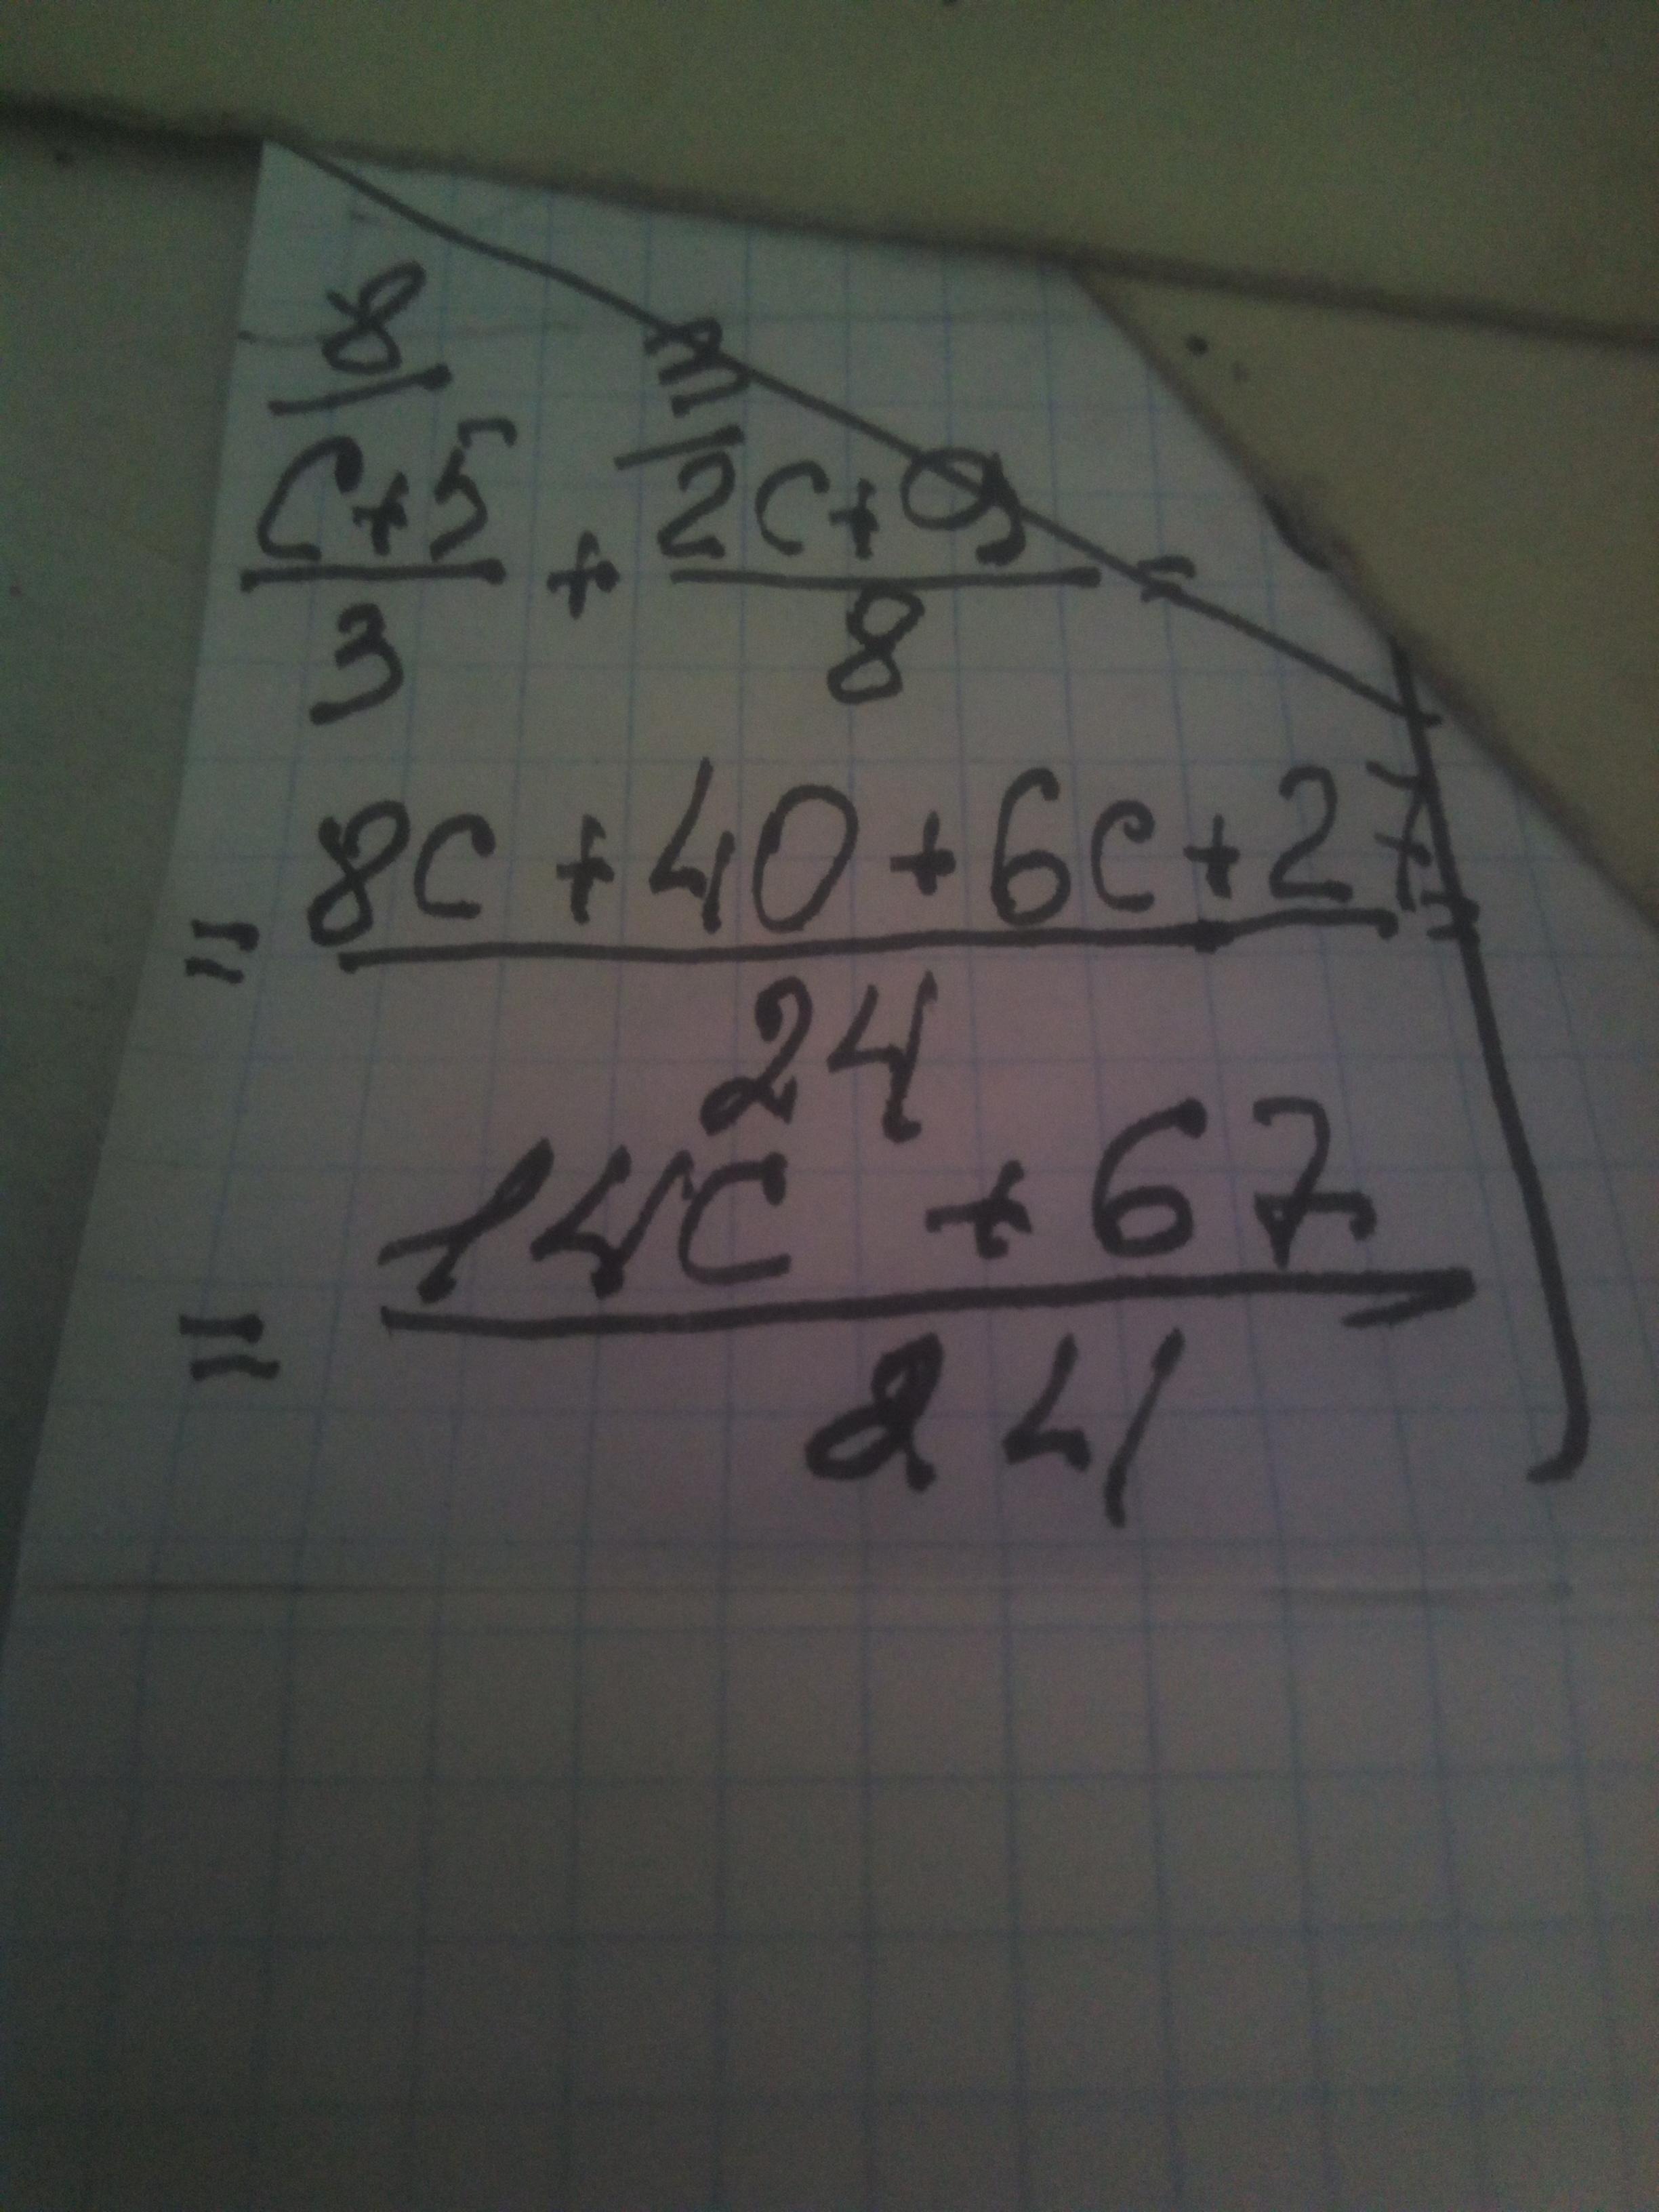 8/ 3/
(c+5)/3 + (2c+9)/8 =
= (8c+40+6c+27)/24 =
= (14c+67)/24